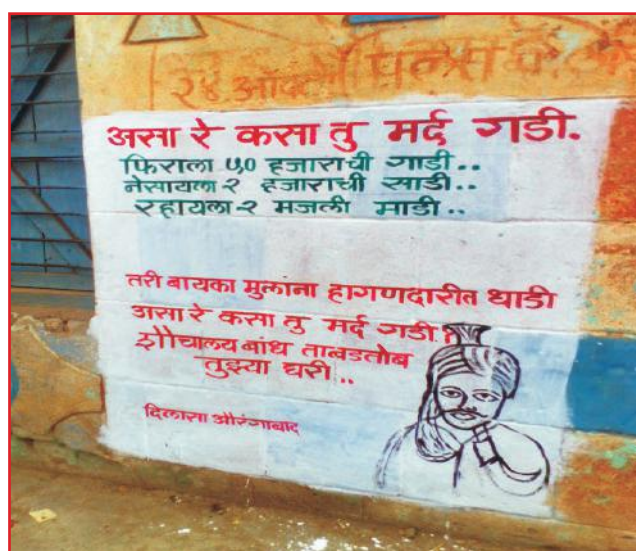 २४ ऑक्टो
असा रे कसा तु मर्द गडी.
फिराला ५० हजाराची गाडी..
नेसायला २ हजाराची साडी..
रहायला २ मजली माडी..
तरी बायका मुलाना हागणदारीत धाडी
असा रे कसा तु मर्द गडी।
शौचालय बांध ताबडतोब
तुझ्या घरी..
दिलासा औरंगाबाद